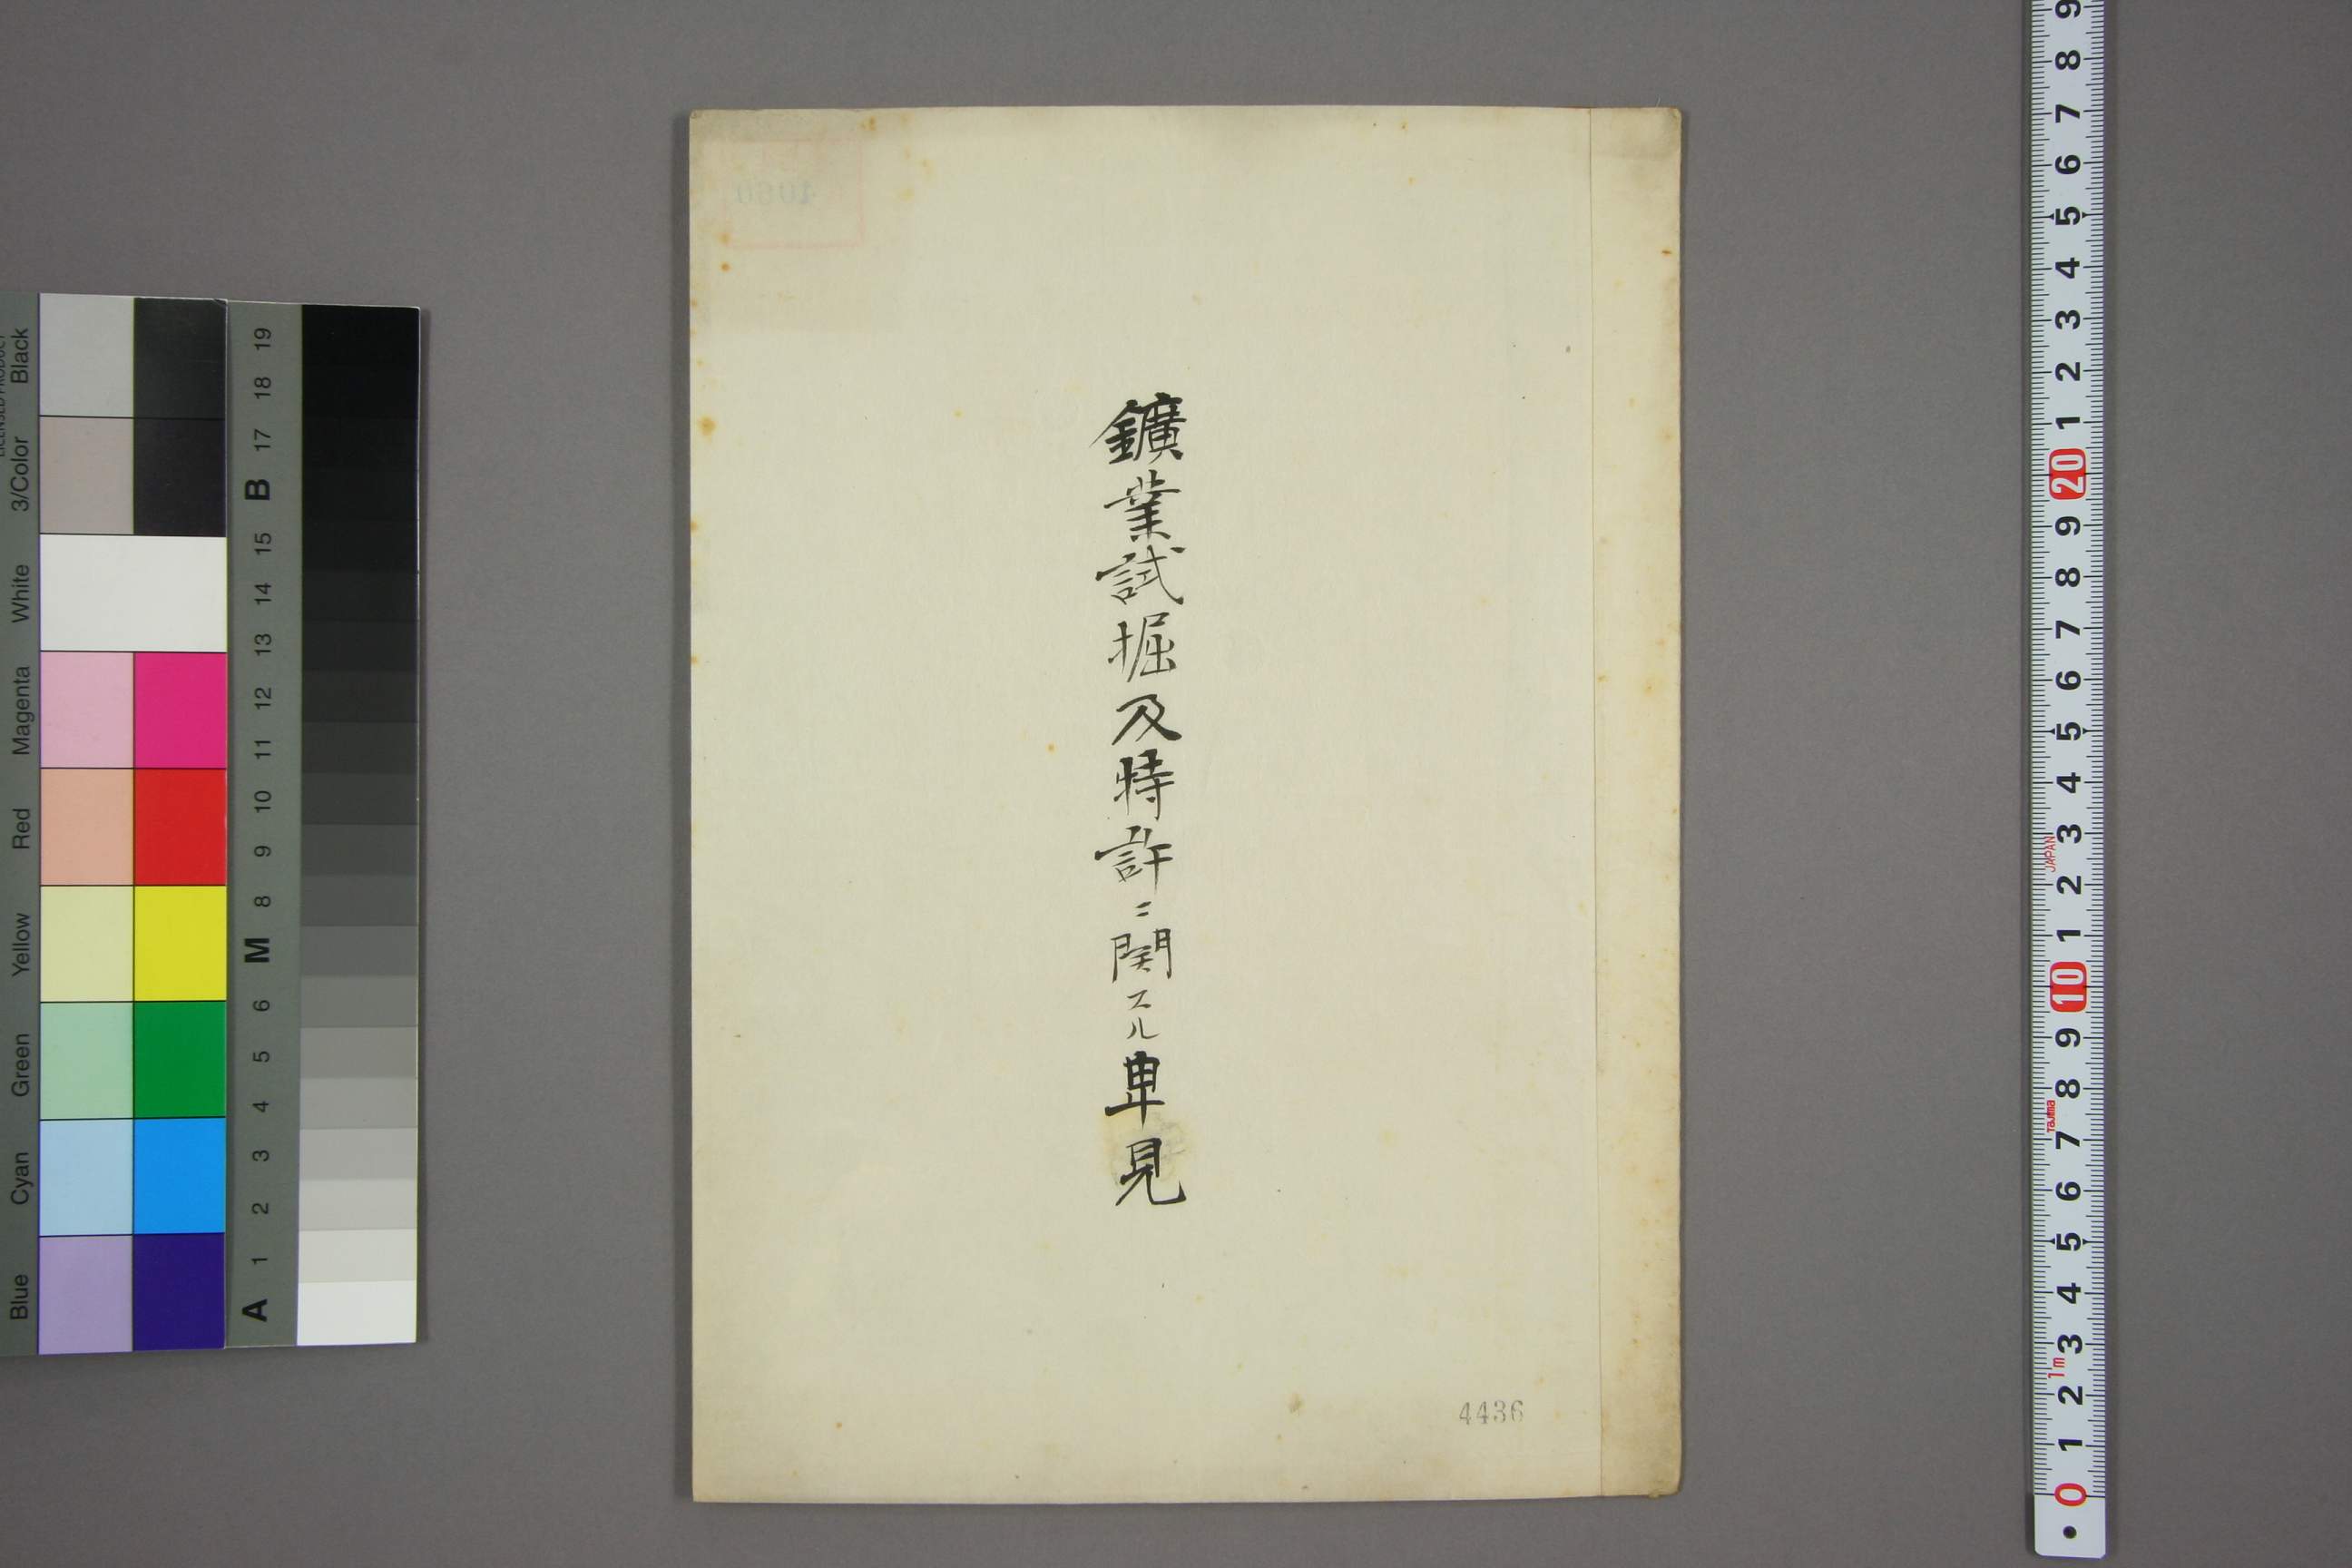 鑛業試掘及特許ニ関スル卑見
4436
Blue Cyan Green Yellow Red Magenta White 3/Color Black
A 1 2 3 4 5 6 M 8 9 10 11 12 13 14 15 B 17 18 19
9 8 7 6 5 4 3 2 1 20 9 8 7 6 5 4 3 2 1 10 9 8 7 6 5 4 3 2 1 0
JAPAN
Tajima
1m